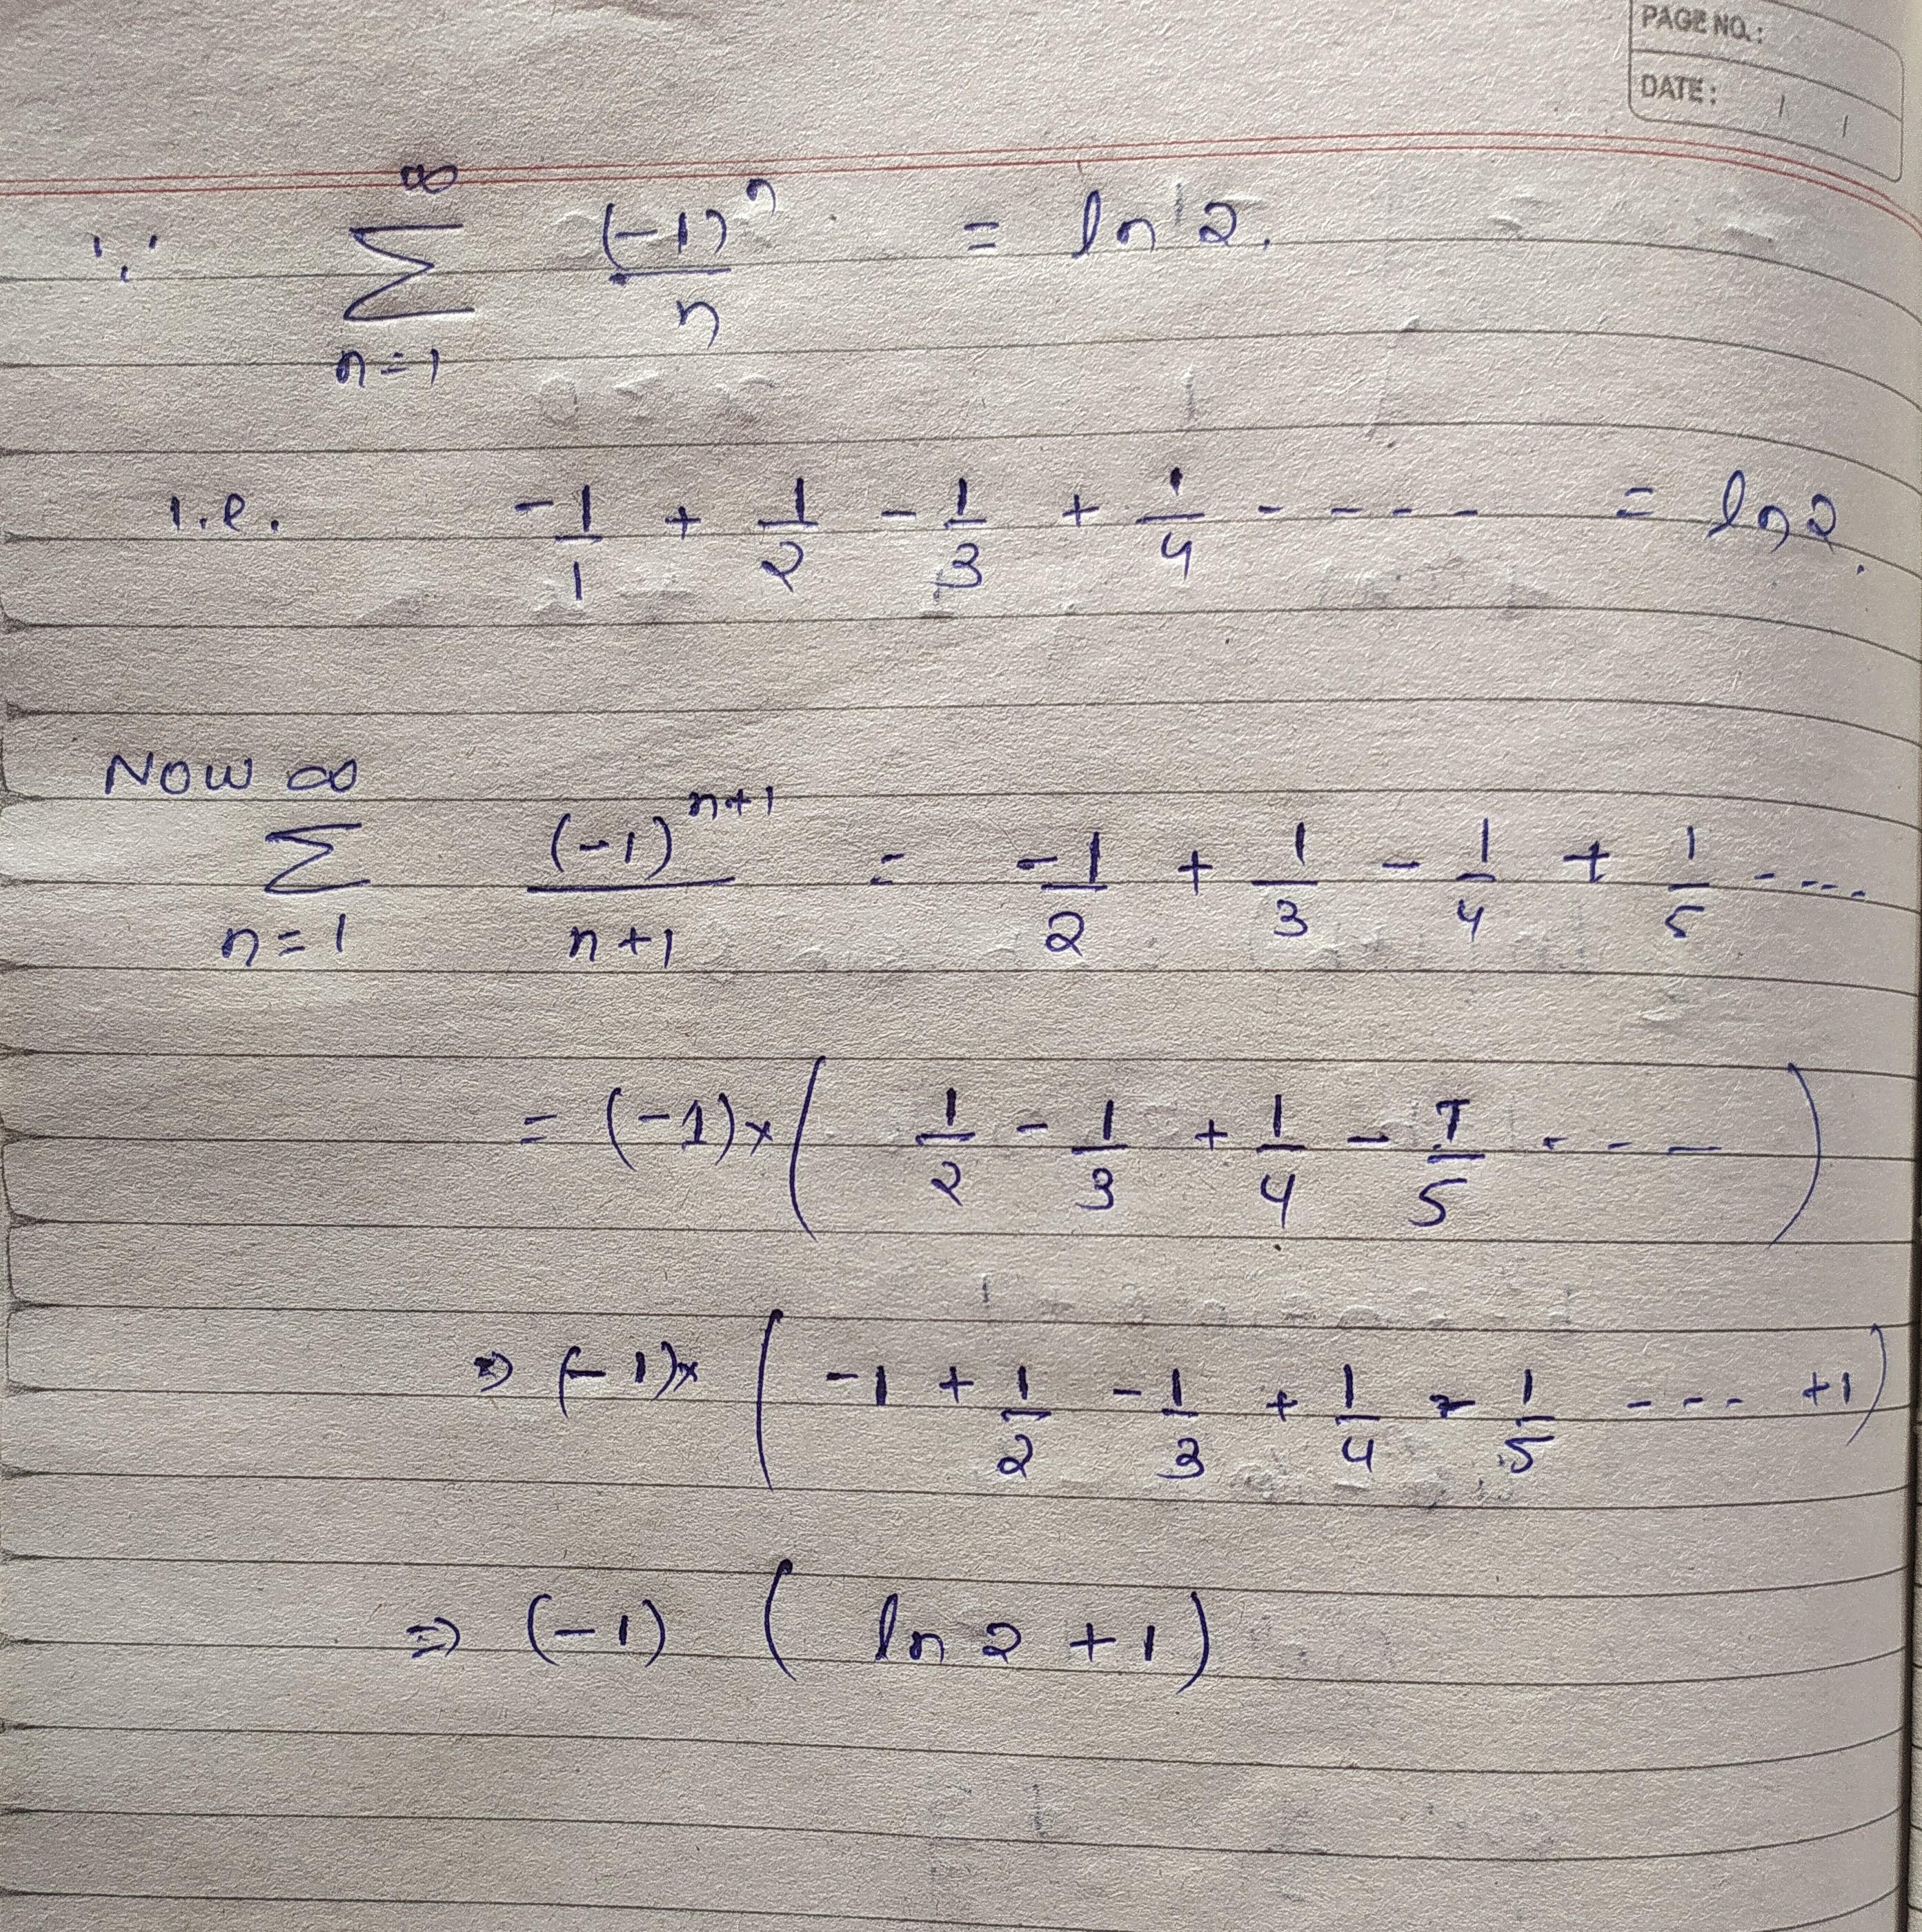 PAGE NO.:
DATE: / /
∵ ∑_{n=1}^{∞} (-1)^n / n = ln 2.
i.e. -1/1 + 1/2 - 1/3 + 1/4 - - - - - = ln 2.
Now
∑_{n=1}^{∞} (-1)^{n+1} / n+1 = -1/2 + 1/3 - 1/4 + 1/5 - - - -
= (-1)× ( 1/2 - 1/3 + 1/4 - 1/5 - - - )
⇒ (-1)× ( -1 + 1/2 - 1/3 + 1/4 - 1/5 - - - +1 )
⇒ (-1) ( ln 2 + 1 )